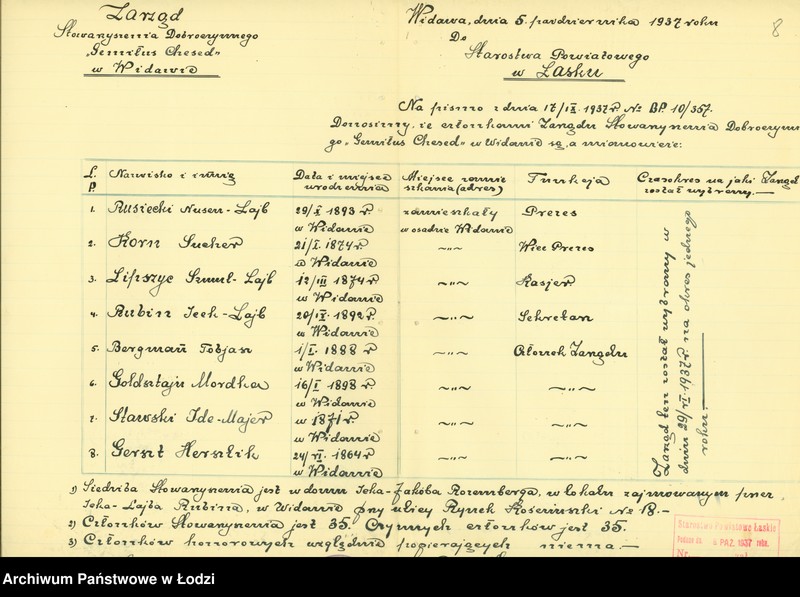 Zarząd
Stowarzyszenia Dobroczynnego
„Gemiłus Chesed”
w Widawie
Widawa, dnia 5. października 1937 roku
8
Do
Starostwa Powiatowego
w Łasku
Na pismo z dnia 17/IX. 1937 r. Nr BP. 10/357.
Donosimy, że członkami Zarządu Stowarzyszenia Dobroczynne-
go „Gemiłus Chesed” w Widawie są, a mianowicie:
L. P. Nazwisko i imię Data i miejsce urodzenia Miejsce zamieszkania (adres) Funkcja Czasokres na jaki Zarząd został wybrany.—
1. Rusiecki Nusen-Lajb 29/X 1893 r. w Widawie zamieszkały w osadzie Widawie Prezes
2. Korn Sucher 21/I. 1874 r. w Widawie ~„~ Wice Prezes
3. Lipszyc Szmul-Lajb 12/III 1874 r. w Widawie ~„~ Kasjer
4. Rubin Icek-Lajb 20/IX. 1892 r. w Widawie ~„~ Sekretarz
5. Bergman Tobjasz 1/I. 1888 r w Widawie ~„~ Członek Zarządu
6. Goldsztajn Mordka 16/I 1898 r. w Widawie ~„~ ~„~
7. Stawski Ide-Majer w 1871 r. w Widawie ~„~ ~„~
8. Gerszt Herszlik 24/VI. 1864 r w Widawie ~„~ ~„~
Zarząd ten został wybrany w
dniu 29/VI 1937 r. na okres jednego
roku.—
1) Siedziba Stowarzyszenia jest w domu Icka-Jakóba Rozemberga, w lokalu zajmowanym przez
Icka-Lajba Rubina, w Widawie przy ulicy Rynek Kościuszki Nr 18.—
2) Członków Stowarzyszenia jest 35. Czynnych członków jest 35.
3) Członków honorowych względnie popierających niema.—
Starostwo Powiatowe Łaskie
6 PAŹ. 1937 roku.
Nr.
Archiwum Państwowe w Łodzi